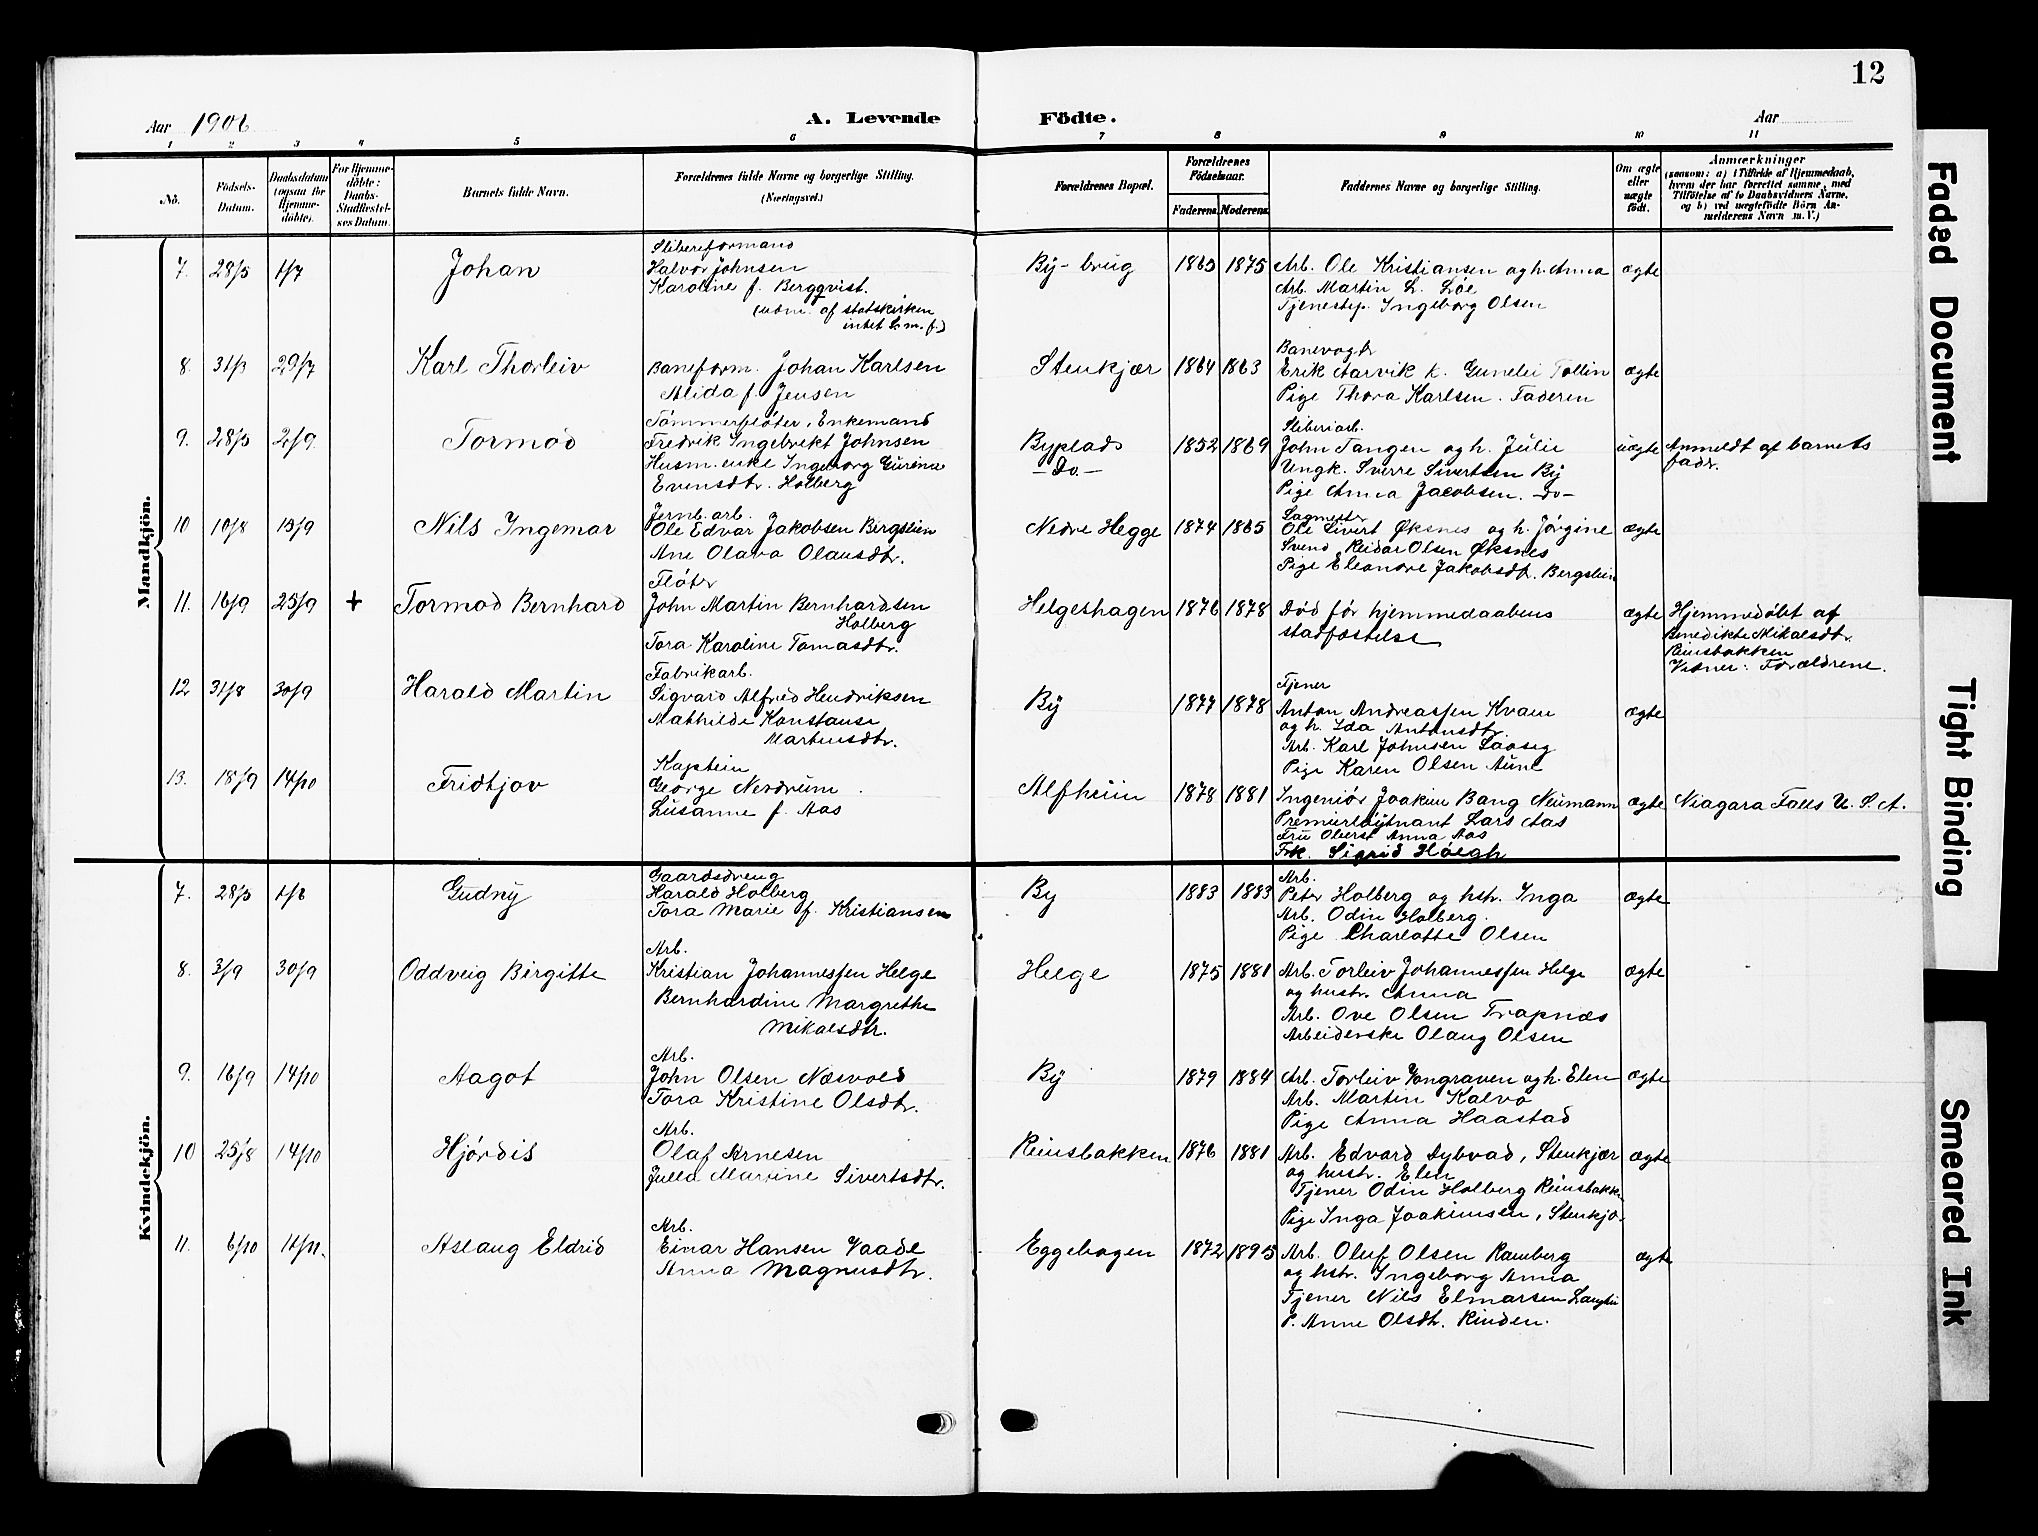 12
Aar 1906 A. Levende Födte. Aar
1 2 3 4 5 6 7 8 9 10 11
No.
Födsels-Datum.
Daabsdatum (ogsaa for Hjemme-döbte).
For Hjemme-döbte: Daabs-Stadfæstel-ses Datum.
Barnets fulde Navn.
Forældrenes fulde Navne og borgerlige Stilling.
(Næringsvei.)
Forældrenes Bopæl.
Forældrenes Födselsaar.
Faderens. Moderens.
Faddernes Navne og borgerlige Stilling.
Om ægte eller uægte födt.
Anmærkninger
(saasom: a) i Tilfælde af Hjemmedaab, hvem der har forrettet samme, med Tilföielse af to Daabsvidners Navne, og b) ved uægtefödte Börn An-melderens Navn m. V.)
Mandkjön.
7. 28/5 1/7 Johan
Sliberformand
Halvor Johnsen
Karoline f. Bergqvist.
(udm. af statskirken
intet S. m. f.)
By-brug 1865 1875
Arb. Ole Kristiansen og h. Anna
Arb. Martin L. Löe
Tjenestep. Ingeborg Olsen
ægte
8. 31/3 29/7 Karl Thorleiv
Baneform. Johan Karlsen
Alida f. Jensen
Stenkjær 1864 1863
Banevogt
Erik Aarvik k. Gunelie Tollin
Pige Thora Karlsen. Faderen
ægte
9. 28/5 2/9 Tormod
Tömmerflöter, Enkemand
Fredrik Ingebrikt Johnsen
Husm. enke Ingeborg Gurine
Evensdtr. Holberg
Byplads
-Do.-
1852 1869
Sliberiarb.
John Tangen og h. Julie
Ungk. Sverre Sivertsen By
Pige Anna Jacobsen. -Do-
uægte
Anmeldt af barnets
fadr.
10 10/8 13/9 Nils Ingemar
Jernb. arb.
Ole Edvar Jakobsen Bergslien
Ane Olava Olausdtr.
Nedre Hegge 1874 1865
Sagmestr
Ole Sivert Øksnes og h. Jörgine
Svend Reidar Olsen Øksnes
Pige Eleonore Jakobsdt. Bergslien
ægte
11. 16/9 23/9 + Tormod Bernhard
Flöter
John Martin Bernhardsen
Holberg
Tora Karoline Tomasdtr.
Helgeshagen 1876 1878
Död för hjemmedaabens
stadfæstelse
ægte
Hjemmedöbt af
Benedikte Mikalsdtr.
Reinsbakken
Vidner: Forældrene.
12 31/8 30/9 Harald Martin
Fabrikarb.
Sigvard Alfred Hendriksen
Mathilde Konstanse
Martinsdtr.
By 1877 1878
Tjener
Anton Andreassen Kvam
og h. Ida Antonsdtr.
Arb. Karl Johnsen Saaseg
Pige Karen Olsen Aune
ægte
13. 18/9 14/10 Fridtjov
Kaptein
George Nerdrum
Susanne f. Aas
Alfheim 1878 1881
Ingeniör Joakim Bang Neumann
Premierlöytnant Lars Aas
Fru Oberst Anna Aas
Frk. Sigrid Höegh
ægte
Niagara Falls U. S. A.
Kvindekjön.
7. 28/5 1/8 Gudny
Gaardsdreng
Harald Holberg
Tora Marie f. Kristiansen
By 1883 1883
Arb.
Peter Holberg og hstr. Inga
Arb. Odin Holberg.
Pige Charlotte Olsen
ægte
8. 3/9 30/9 Oddveig Birgitte
Arb.
Kristian Johannessen Helge
Bernhardine Margrethe
Mikalsdtr.
Helge 1875 1881
Arb. Torleiv Johannessen Helge
og hustr. Anna
Arb. Ove Olsen Trapnæs
Arbeiderske Olaug Olsen
ægte
9. 16/9 14/10 Aagot
Arb.
John Olsen Næsvold
Tora Kristine Olsdtr.
By 1879 1884
Arb. Torleiv Vongraven og h. Elen
Arb. Martin Kalvø
Pige Anna Haastad
ægte
10 25/8 14/10 Hjördis
Arb.
Olaf Arnesen
Julla Martine Sivertsdtr.
Reinsbakken 1876 1881
Arb. Edvard Dybvad, Stenkjær
og hustr. Elen
Tjener Odin Holberg Reinsbakk.
Pige Inga Joakimsen, Stenkjæ.
ægte
11. 6/10 11/11. Aslaug Eldrid
Arb.
Einar Hansen Vaade
Anna Magnusdtr.
Eggebogen 1872 1895
Arb. Oluf Olsen Ramberg
og hstr. Ingeborg Anna
Tjener Nils Elmarsen
P. Anne Olsdtr. Rinden.
ægte
Faded Document
Tight Binding
Smeared Ink